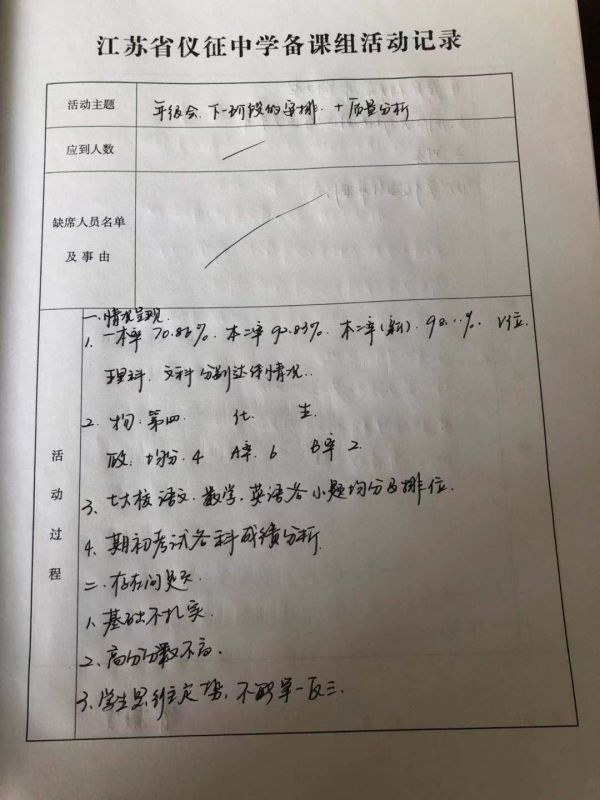 江苏省仪征中学备课组活动记录
活动主题
年级会.下一阶段的安排.+质量分析
应到人数
缺席人员名单
及事由
活动过程
一.情况呈现.
1. 一本率 70.86%. 本二率 90.83%. 本二率(新). 98...%. 位.
理科.文科分别达体情况..
2. 物:第四 化. 生.
政:均分.4 A率.6 B率2.
3. 语文.数学.英语各小题均分及排位.
4. 期初考试各科成绩分析.
二.存在问题.
1. 基础不扎实.
2. 高分分数不高.
3. 学生思维定势,不能举一反三.